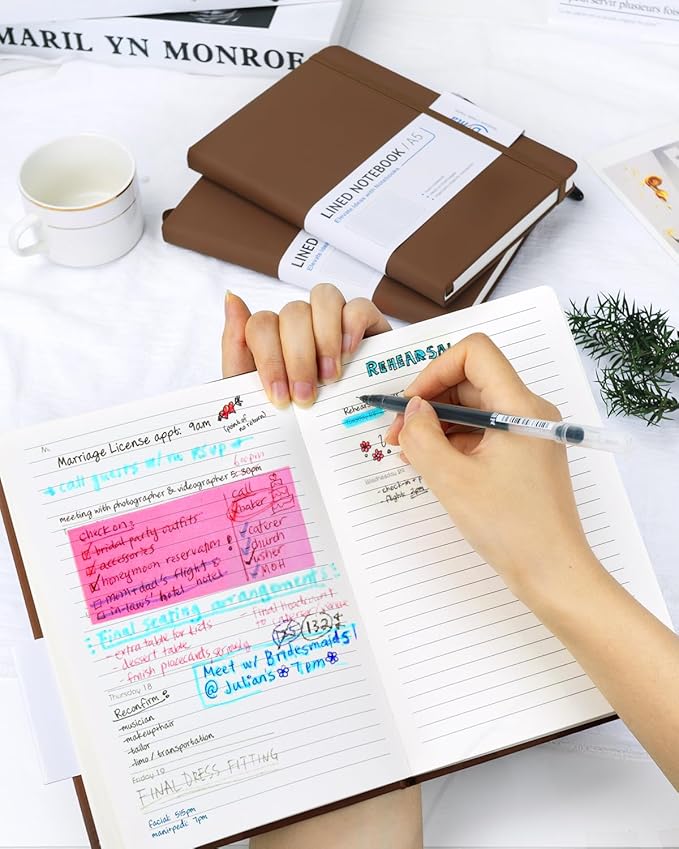 MARILYN MONROE
pour plusieurs
LINED NOTEBOOK / A5
Elevate ideas with Notebooks
LINED
Elevate idea
Marriage License appt: 9am
(point of no return)
call guests w/ no RSVP
6:00pm
meeting with photographer & videographer 5:30pm
Check on:
bridal party outfits
accessories
honeymoon reservation
mom + dad's flight
in-laws' hotel hotel
call
baker
caterer
church
usher
MOH
Final seating arrangements:
- extra table for kids
- dessert table
- finish placecards seriously
- final headcount
to
75 132
Meet w/ Bridesmaids
@ Julian's 7pm
Thursday 18
Reconfirm:
-musician
-makeup+hair
-tailor
-limo/transportation
Friday 19
FINAL DRESS FITTING
facial: 5:15pm
mani+pedi: 7pm
REHEARSAL
Wednesday
- check-in +
- flight: 2pm